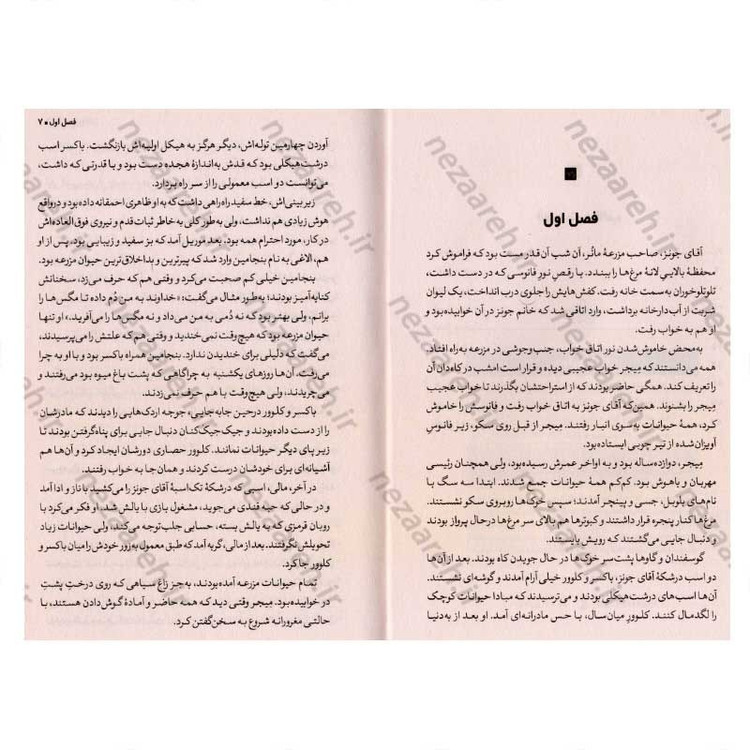 فصل اول
آقای جونز، صاحب مزرعهٔ مانُر، آن شب آن قدر مست بود که فراموش کرد
محفظهٔ بالاییِ لانهٔ مرغ‌ها را ببندد. با رقصِ نورِ فانوسی که در دست داشت،
تلوتلوخوران به سمت خانه رفت. کفش‌هایش را جلوی درب انداخت، یک لیوان
شربت از آب‌دارخانه برداشت، وارد اتاقی شد که خانم جونز در آن خوابیده بود و
او هم به خواب رفت.
به‌محض خاموش‌شدن نور اتاق خواب، جنب‌وجوشی در مزرعه به‌راه افتاد.
همه می‌دانستند که مِیجر خواب عجیبی دیده و قرار است امشب در کاه‌دان آن
را تعریف کند. همگی حاضر بودند که از استراحتشان بگذرند تا خواب عجیب
مِیجر را بشنوند. همین‌که آقای جونز به اتاق خواب رفت و فانوسش را خاموش
کرد، همهٔ حیوانات به‌سوی انبار رفتند. مِیجر از قبل روی سکو، زیر فانوسِ
آویزان‌شده از تیر چوبی ایستاده بود.
مِیجر، دوازده‌ساله بود و به اواخر عمرش رسیده بود، ولی همچنان رئیسی
مهربان و باهوش بود. کم‌کم همهٔ حیوانات جمع شدند. ابتدا سه سگ با
نام‌های بلوبل، جسی و پینچر آمدند؛ سپس خوک‌ها روبروی سکو نشستند.
مرغ‌ها کنار پنجره قرار داشتند و کبوترها هم بالای سر مرغ‌ها درحال پرواز بودند
و دنبال جایی می‌گشتند که رویش بایستند.
گوسفندان و گاوها پشت‌سر خوک‌ها در حال جویدن کاه بودند. بعد از آن‌ها
دو اسب درشکهٔ آقای جونز، باکسر و کلوور خیلی آرام آمدند و گوشه‌ای نشستند.
آن‌ها اسب‌های درشت‌هیکلی بودند و می‌ترسیدند که مبادا حیوانات کوچک
را لگدمال کنند. کلوورِ میان‌سال، با حس مادرانه‌ای آمد. او بعد از به‌دنیا
فصل اول ■ ۷
آوردن چهارمین توله‌اش، دیگر هرگز به هیکل اولیه‌اش بازنگشت. باکسر اسب
درشت‌هیکلی بود که قدش به‌اندازهٔ هجده دست بود و با قدرتی که داشت،
می‌توانست دو اسب معمولی را از سر راه بردارد.
زیر بینی‌اش، خط سفید راه‌راهی داشت که به او ظاهری احمقانه داده بود و درواقع
هوش زیادی هم نداشت، ولی به‌طور کلی به خاطر ثبات قدم و نیروی فوق‌العاده‌اش
در کار، مورد احترام همه بود. بعد موریل آمد که بز سفید و زیبایی بود. پس از او
هم، الاغی به نام بنجامین وارد شد که پیرترین و بداخلاق‌ترین حیوان مزرعه بود.
بنجامین خیلی کم صحبت می‌کرد و وقتی هم که حرف می‌زد، سخنانش
کنایه‌آمیز بودند؛ به‌طور مثال می‌گفت: «خداوند به من دُم داده تا مگس‌ها را
برانم، ولی بهتر بود که نه دُمی به من می‌داد و نه مگس‌ها را می‌آفرید.» او تنها
حیوان مزرعه بود که هیچ‌وقت نمی‌خندید و وقتی هم که علتش را می‌پرسیدند،
می‌گفت که دلیلی برای خندیدن ندارد. بنجامین همراه باکسر بود و با او به چرا
می‌رفت. آن‌ها روزهای یکشنبه به چراگاهی که پشت باغ میوه بود می‌رفتند و
می‌چریدند، ولی هیچ‌وقت با هم حرف نمی‌زدند.
باکسر و کلوور درحین جابه‌جایی، جوجه اردک‌هایی را دیدند که مادرشان
را از دست داده بودند و جیک‌جیک‌کنان دنبال جایی برای پناه‌گرفتن بودند تا
زیر پای دیگر حیوانات نمانند. کلوور حصاری دورشان ایجاد کرد و آن‌ها هم
آشیانه‌ای برای خودشان درست کردند و همان‌جا به خواب رفتند.
در آخر، مالی، اسبی که درشکهٔ تک‌اسبهٔ آقای جونز را می‌کشید با ناز و ادا آمد
و در حالی که حبه قندی می‌جوید، مشغول بازی با یالش شد. او فکر می‌کرد با
روبان قرمزی که به یالش بسته، حسابی جلب‌توجه می‌کند، ولی حیوانات زیاد
تحویلش نگرفتند. بعد از مالی، گربه آمد که طبق معمول به‌زور خودش را میان باکسر و
کلوور جا کرد.
تمام حیوانات مزرعه آمده بودند، به‌جز زاغ سیاهی که روی درختِ پشتِ
در خوابیده بود. مِیجر وقتی دید که همه حاضر و آمادهٔ گوش‌دادن هستند، با
حالتی مغرورانه شروع به سخن‌گفتن کرد.
nezaareh.ir
nezaareh.ir
nezaareh.ir
nezaareh.ir
nezaareh.ir
nezaareh.ir